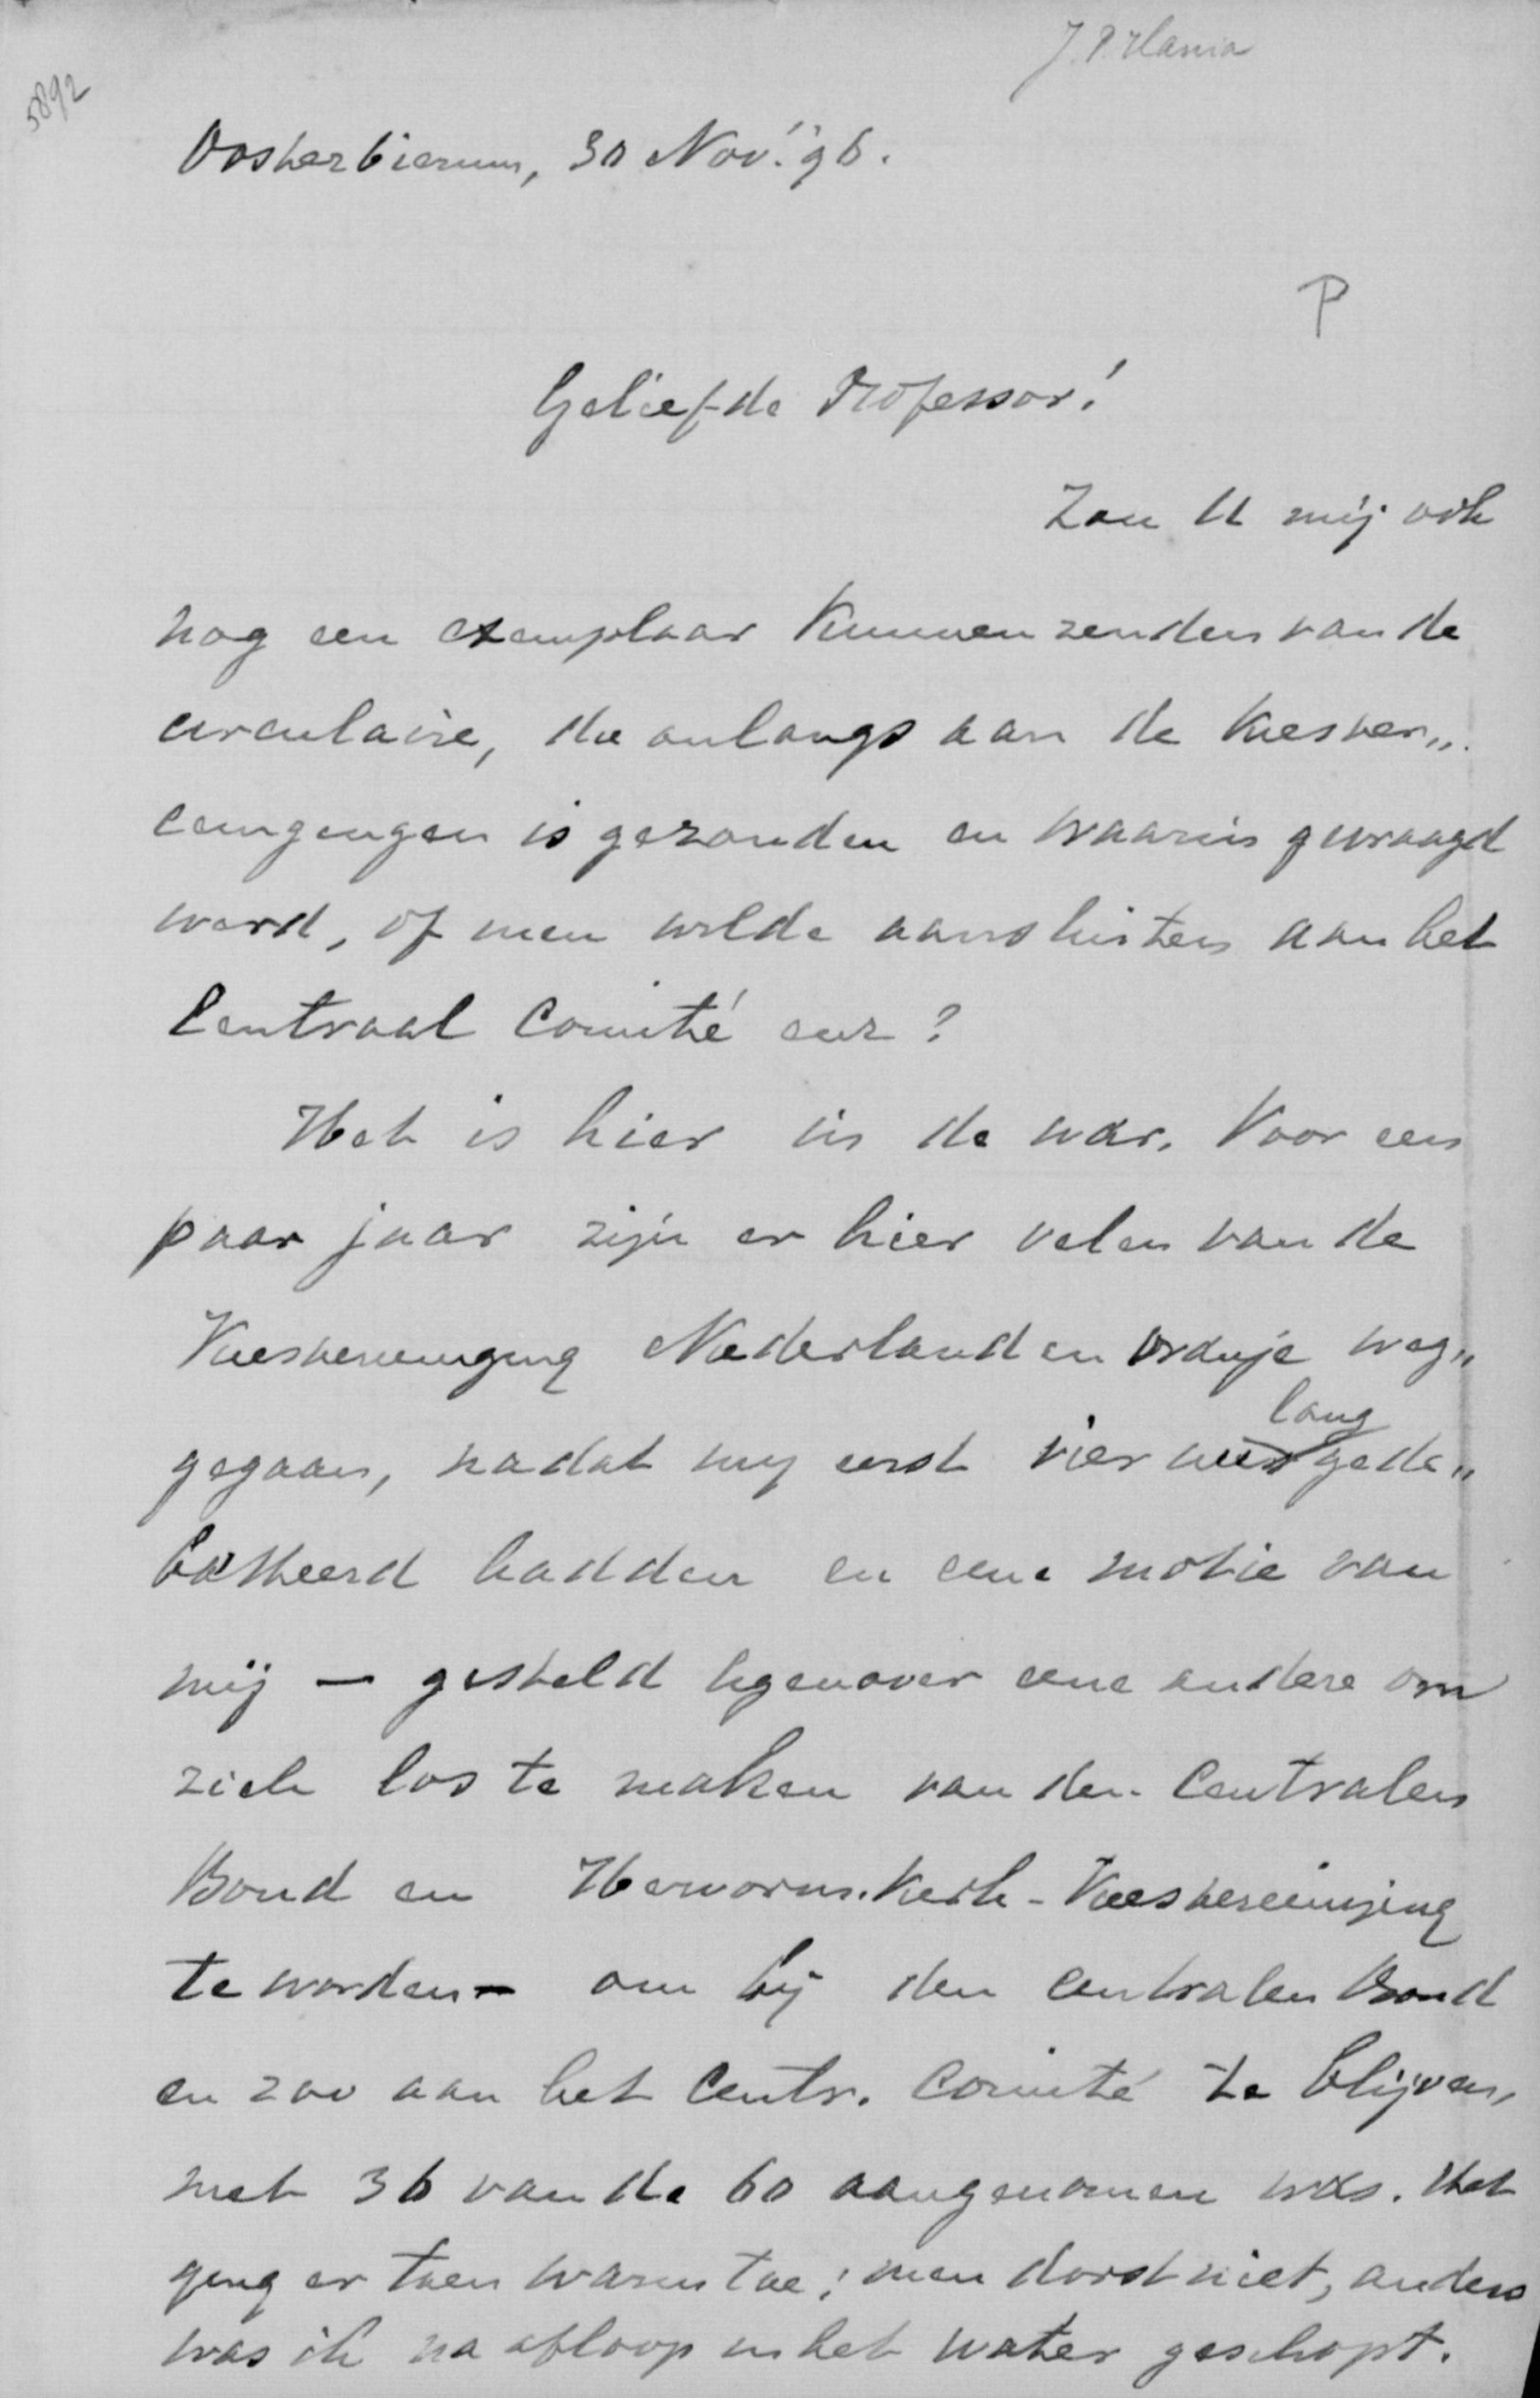 J. P. Hania
5892
Oosterbierum, 30 Nov. '96.
P
Geliefde Professor!
Zou U mij ook
nog een exemplaar kunnen zenden van de
circulaire, die onlangs aan de Kiesver„
eenigingen is gezonden en waarin gevraagd
werd, of men wilde aansluiten aan het
Centraal Comité enz?
Het is hier in de war. Voor een
paar jaar zijn er hier velen van de
Kiesvereeniging Nederland en Oranje weg„
gegaan, nadat wij eerst vier uur lang gede„
batteerd hadden en eene motie van
mij — gesteld tegenover eene andere om
zich los te maken van den Centralen
Bond en Hervormd. Kerk-Kiesvereeniging
te worden — om bij den Centralen Bond
en zoo aan het Centr. Comité te blijven,
met 36 van de 60 aangenomen was. Het
ging er toen warm toe; men dorst niet, anders
was ik na afloop in het water geschopt.